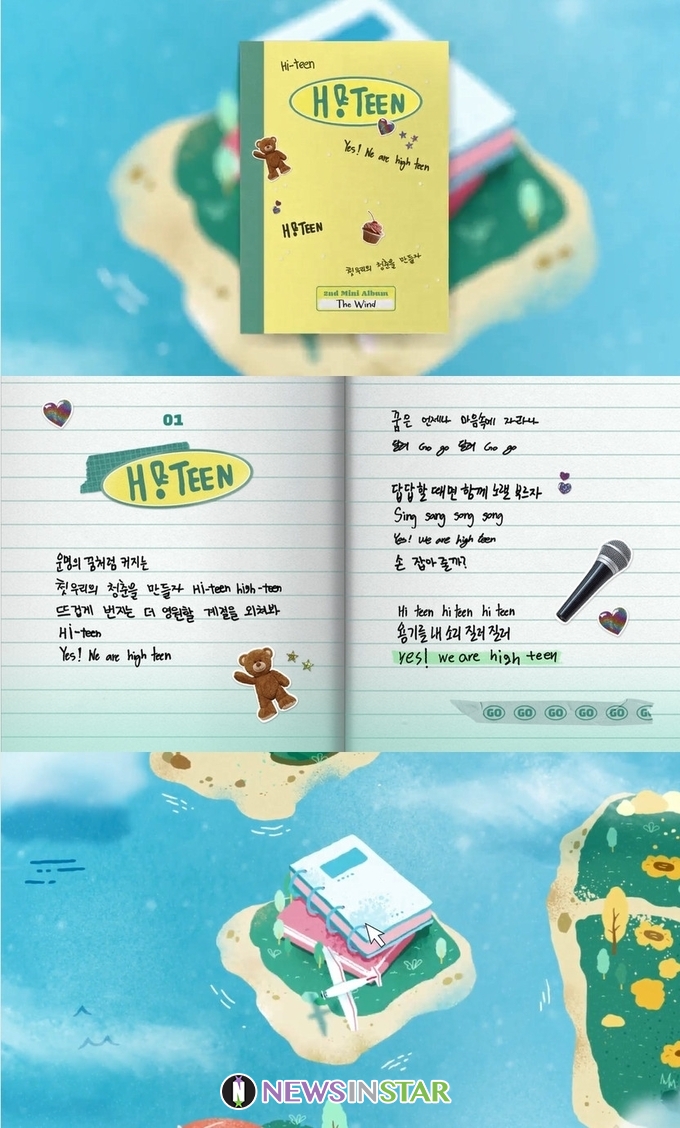 Hi-teen
H!TEEN
Yes! We are high teen
H!TEEN
우리의 청춘을 만들자
2nd Mini Album
The Wind
01
H!TEEN
운명의 꿈처럼 커지는
우리의 청춘을 만들자 Hi-teen high-teen
뜨겁게 번지는 더 영원할 계절을 외쳐봐
Hi-teen
Yes! We are high teen
꿈은 언제나 마음속에 자라나
달려 Go go 달려 Go go
답답할 때면 함께 노랠 부르자
Sing sang song song
Yes! we are high teen
손 잡아줄까?
Hi teen hi teen hi teen
용기를 내 소리 질러 질러
yes! we are high teen
GO GO GO GO GO G
NEWSINSTAR